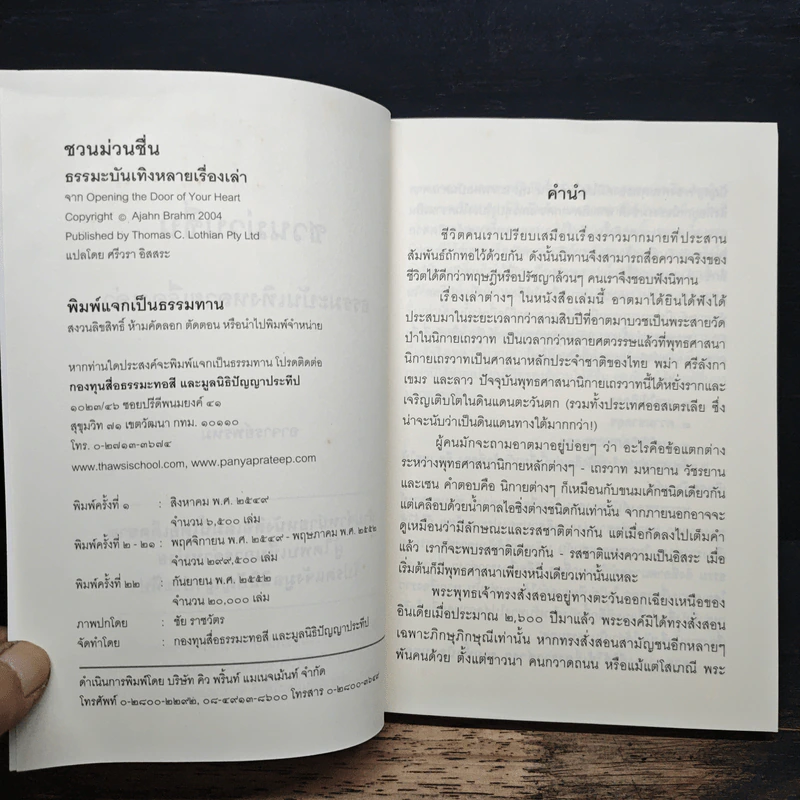 ชวนม่วนชื่น
ธรรมะบันเทิงหลายเรื่องเล่า
จาก Opening the Door of Your Heart
Copyright © Ajahn Brahm 2004
Published by Thomas C. Lothian Pty Ltd
แปลโดย ศรีวรา อิสสระ
พิมพ์แจกเป็นธรรมทาน
สงวนลิขสิทธิ์ ห้ามคัดลอก ตัดตอน หรือนำไปพิมพ์จำหน่าย
หากท่านใดประสงค์จะพิมพ์แจกเป็นธรรมทาน โปรดติดต่อ
กองทุนสื่อธรรมะทอสี และมูลนิธิปัญญาประทีป
๑๐๒๓/๔๖ ซอยปรีดีพนมยงค์ ๔๑
สุขุมวิท ๗๑ เขตวัฒนา กทม. ๑๐๑๑๐
โทร. ๐-๒๗๑๓-๓๖๗๔
www.thawsischool.com, www.panyaprateep.com
พิมพ์ครั้งที่ ๑ : สิงหาคม พ.ศ. ๒๕๔๙
จำนวน ๖,๕๐๐ เล่ม
พิมพ์ครั้งที่ ๒ - ๒๑ : พฤศจิกายน พ.ศ. ๒๕๔๙ - พฤษภาคม พ.ศ. ๒๕๕๒
จำนวน ๒๙๙,๕๐๐ เล่ม
พิมพ์ครั้งที่ ๒๒ : กันยายน พ.ศ. ๒๕๕๒
จำนวน ๒๐,๐๐๐ เล่ม
ภาพปกโดย : ชัย ราชวัตร
จัดทำโดย : กองทุนสื่อธรรมะทอสี และมูลนิธิปัญญาประทีป
ดำเนินการพิมพ์โดย บริษัท คิว พริ้นท์ แมเนจเม้นท์ จำกัด
โทรศัพท์ ๐-๒๘๐๐-๒๒๙๒, ๐๘-๔๙๑๓-๘๖๐๐ โทรสาร ๐-๒๘๐๐-๓๖๔๙
คำนำ
ชีวิตคนเราเปรียบเสมือนเรื่องราวมากมายที่ประสาน
สัมพันธ์ถักทอไว้ด้วยกัน ดังนั้นนิทานจึงสามารถสื่อความจริงของ
ชีวิตได้ดีกว่าทฤษฎีหรือปรัชญาล้วนๆ คนเราจึงชอบฟังนิทาน
เรื่องเล่าต่างๆ ในหนังสือเล่มนี้ อาตมาได้ยินได้ฟังได้
ประสบมาในระยะเวลากว่าสามสิบปีที่อาตมาบวชเป็นพระสายวัด
ป่าในนิกายเถรวาท เป็นเวลากว่าหลายศตวรรษแล้วที่พุทธศาสนา
นิกายเถรวาทเป็นศาสนาหลักประจำชาติของไทย พม่า ศรีลังกา
เขมร และลาว ปัจจุบันพุทธศาสนานิกายเถรวาทนี้ได้หยั่งรากและ
เจริญเติบโตในดินแดนตะวันตก (รวมทั้งประเทศออสเตรเลีย ซึ่ง
น่าจะนับว่าเป็นดินแดนทางใต้มากกว่า!)
ผู้คนมักจะถามอาตมาอยู่บ่อยๆ ว่า อะไรคือข้อแตกต่าง
ระหว่างพุทธศาสนานิกายหลักต่างๆ - เถรวาท มหายาน วัชรยาน
และเซน คำตอบคือ นิกายต่างๆ ก็เหมือนกับขนมเค้กชนิดเดียวกัน
แต่เคลือบด้วยน้ำตาลไอซิ่งต่างชนิดกันเท่านั้น จากภายนอกอาจจะ
ดูเหมือนว่ามีลักษณะและรสชาติต่างกัน แต่เมื่อกัดลงไปเต็มคำ
แล้ว เราก็จะพบรสชาติเดียวกัน - รสชาติแห่งความเป็นอิสระ เมื่อ
เริ่มต้นก็มีพุทธศาสนาเพียงหนึ่งเดียวเท่านั้นแหละ
พระพุทธเจ้าทรงสั่งสอนอยู่ทางตะวันออกเฉียงเหนือของ
อินเดียเมื่อประมาณ ๒,๖๐๐ ปีมาแล้ว พระองค์มิได้ทรงสั่งสอน
เฉพาะภิกษุภิกษุณีเท่านั้น หากทรงสั่งสอนสามัญชนอีกหลายๆ
พันคนด้วย ตั้งแต่ชาวนา คนกวาดถนน หรือแม้แต่โสเภณี พระ